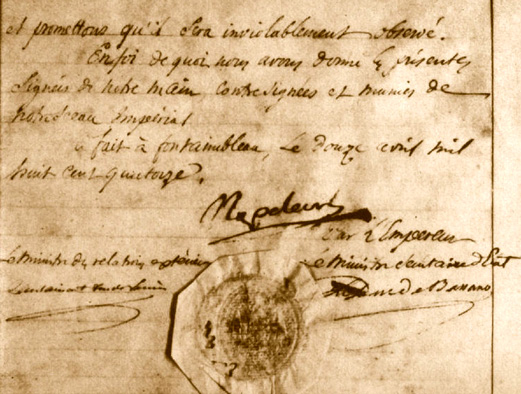 et promettons qu'il sera inviolablement observé.
En foi de quoi nous avons donné les présentes
signées de notre main, contresignées et munies de
notre sceau Impérial
fait à fontainebleau, le douze avril mil
huit cent quatorze.
Napoleon
Par l'Empereur
Le Ministre des relations extérieures
Le Ministre Secrétaire d'Etat
de Bassano